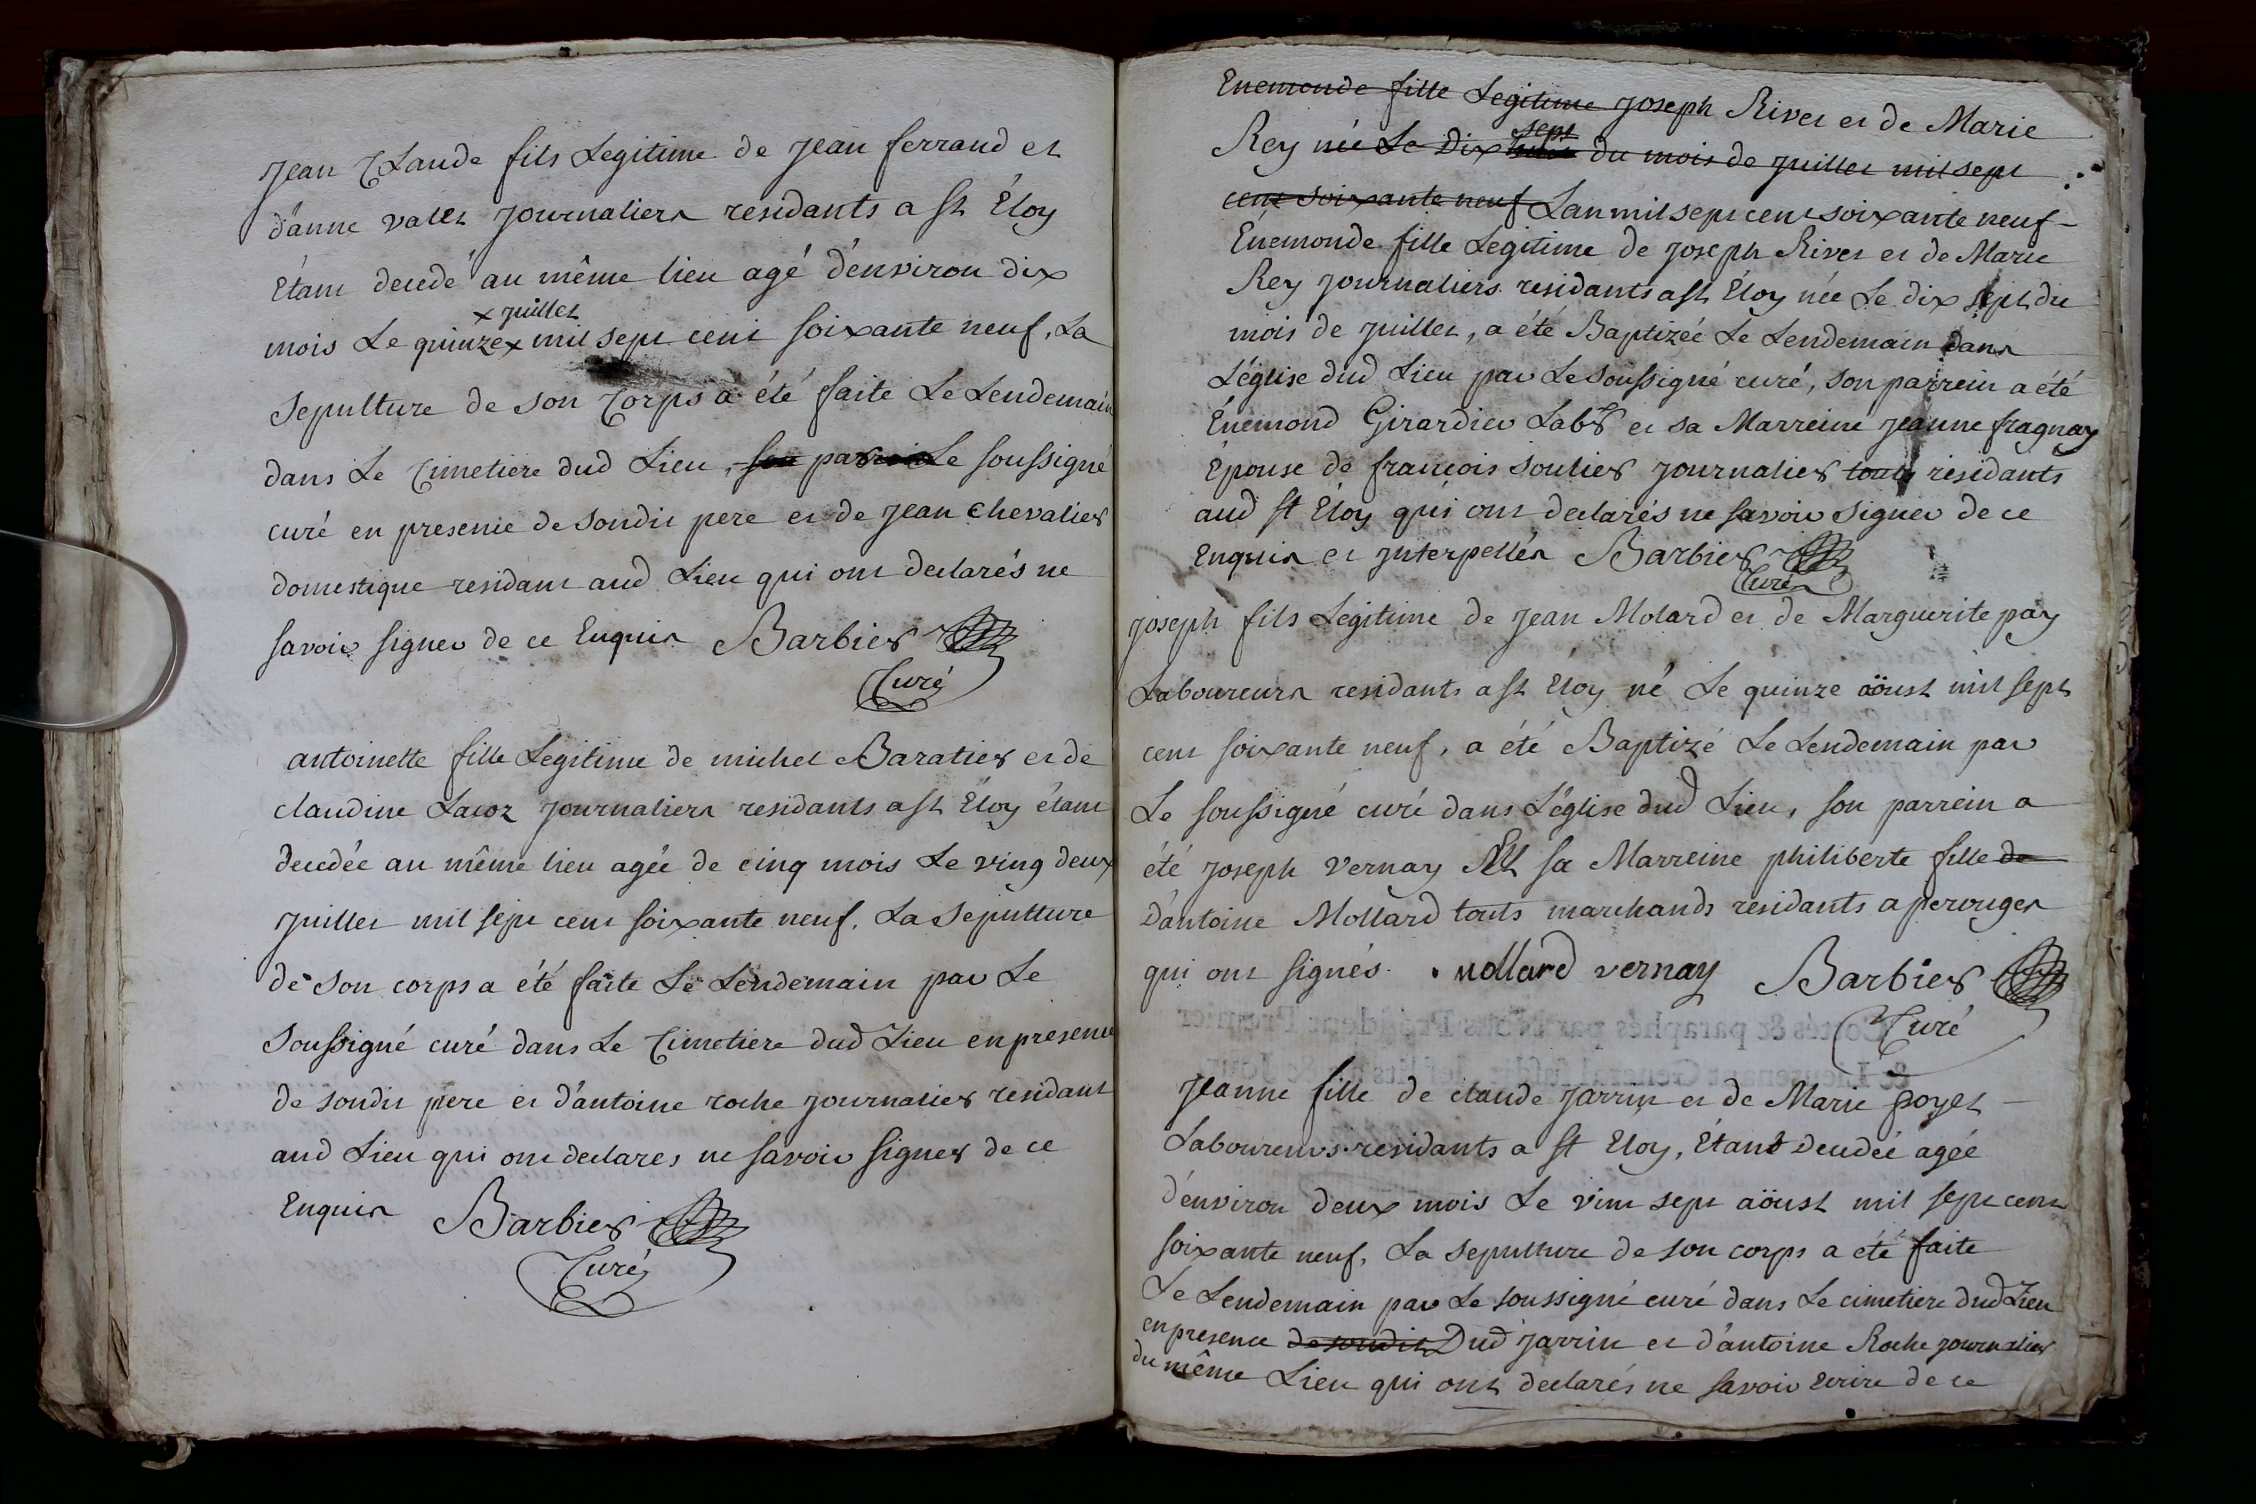 Jean Claude fils Legitime de Jean ferrand et
d'anne valet Journaliers residants a st Éloy
Étant decedé au même lieu agé d'environ dix
x juillet
mois Le quinze x mil sept cent soixante neuf, La
sepulture de son Corps a été faite Le Lendemain
dans Le Cimetiere dud Lieu, son par Le soussigné
curé en presence de sondit pere et de Jean Chevalier
domestique residant aud Lieu qui ont declarés ne
savoir signer de ce Enquis Barbier
Curé
antoinette fille Legitime de michel Baratier et de
claudine Lacoz Journaliers residants a st Éloy étant
decedée au même lieu agée de cinq mois Le ving deux
juillet mil sept cent soixante neuf. La sepulture
de son corps a été faite Le Lendemain par Le
soussigné curé dans Le Cimetiere dud Lieu en presence
de sondit pere et d'antoine roche journalier residant
aud Lieu qui ont declares ne savoir signer de ce
Enquis Barbier
Curé
Enemonde fille Legitime Joseph River et de Marie
sept
Rey née Le Dix du mois de juillet mil sept
cent soixante neuf Lan mil sept cent soixante neuf -
Énemonde fille Legitime de Joseph River et de Marie
Rey Journaliers residants a st Éloy née Le dix sept du
mois de juillet, a été Baptizée Le Lendemain dans
L'église dud Lieu par Le soussigné curé, son parrein a été
Énemond Girardier Labr et sa Marreine Jeanne fragnay
Épouse de françois soulier journalier touts residants
aud st Éloy qui ont declarés ne savoir signer de ce
Enquis et Interpellés Barbier
Curé
Joseph fils Legitime de Jean Molard et de Marguerite pay
Laboureurs residants a st Eloy né Le quinze aöust mil sept
cent soixante neuf, a été Baptizé Le Lendemain par
Le soussigné curé dans L'église dud Lieu, son parrein a
été Joseph Vernay Et sa Marreine philiberte fille de
D'antoine Mollard touts marchands residants a perouges
qui ont signés. Mollard vernay Barbier
Curé
Jeanne fille de claude Jarrin et de Marie poyet
Laboureurs residants a st Eloy, Étant decedée agée
d'environ deux mois Le vint sept aöust mil sept cent
soixante neuf, La sepulture de son corps a été faite
Le Lendemain par Le soussigné curé dans Le cimetiere dud Lieu
en presence de sondit Dud Jarrin et d'antoine Roche journalier
du même Lieu qui ont declarés ne savoir Ecrire de ce